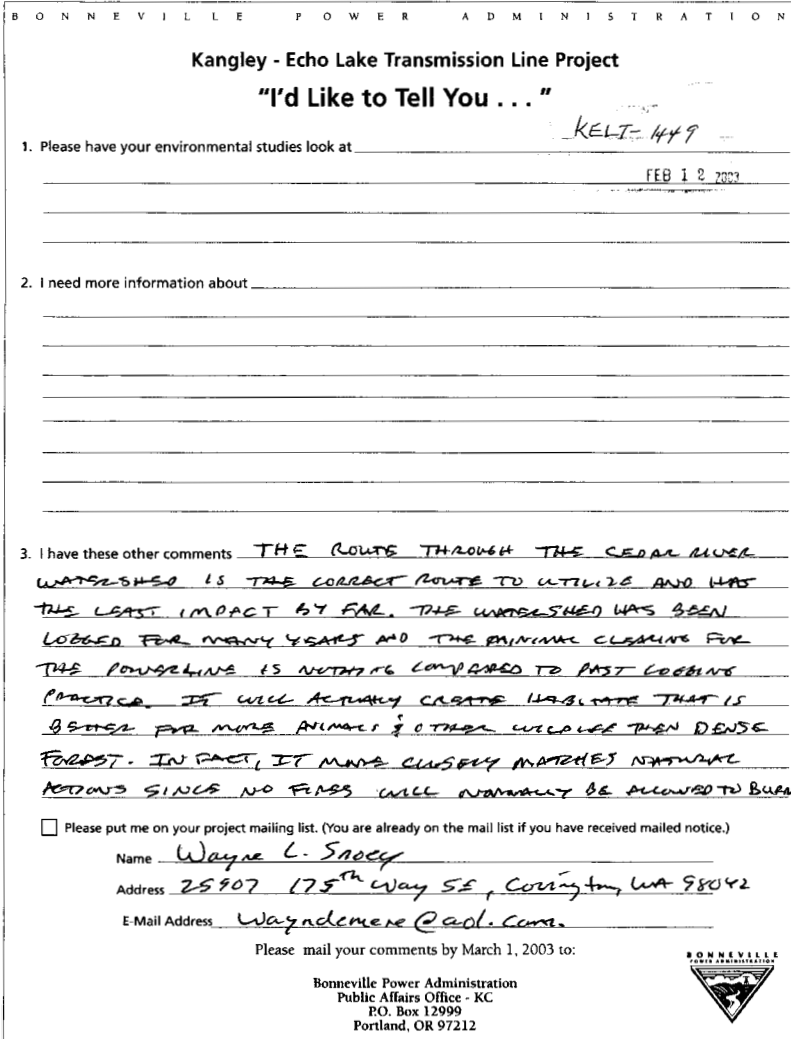 BONNEVILLE POWER ADMINISTRATION
Kangley - Echo Lake Transmission Line Project
"I'd Like to Tell You . . . "
KELT-449
1. Please have your environmental studies look at
FEB 12 2003
2. I need more information about
3. I have these other comments THE ROUTE THROUGH THE CEDAR RIVER
WATERSHED IS THE CORRECT ROUTE TO UTILIZE AND HAS
THE LEAST IMPACT BY FAR. THE WATERSHED HAS BEEN
LOGGED FOR MANY YEARS AND THE MINIMAL CLEARING FOR
THE POWERLINE IS NOTHING COMPARED TO PAST LOGGING
PRACTICE. IT WILL ACTUALLY CREATE HABITATE THAT IS
BETTER FOR MORE ANIMALS & OTHER WILDLIFE THEN DENSE
FOREST. IN FACT, IT MORE CLOSELY MATCHES NATURAL
ACTIONS SINCE NO FIRES WILL NORMALLY BE ALLOWED TO BURN
Please put me on your project mailing list. (You are already on the mail list if you have received mailed notice.)
Name Wayne L.
Address 25907 175th Way SE, Covington, WA 98042
E-Mail Address Wayndemere@aol.com.
Please mail your comments by March 1, 2003 to:
Bonneville Power Administration
Public Affairs Office - KC
P.O. Box 12999
Portland, OR 97212
BONNEVILLE
POWER ADMINISTRATION